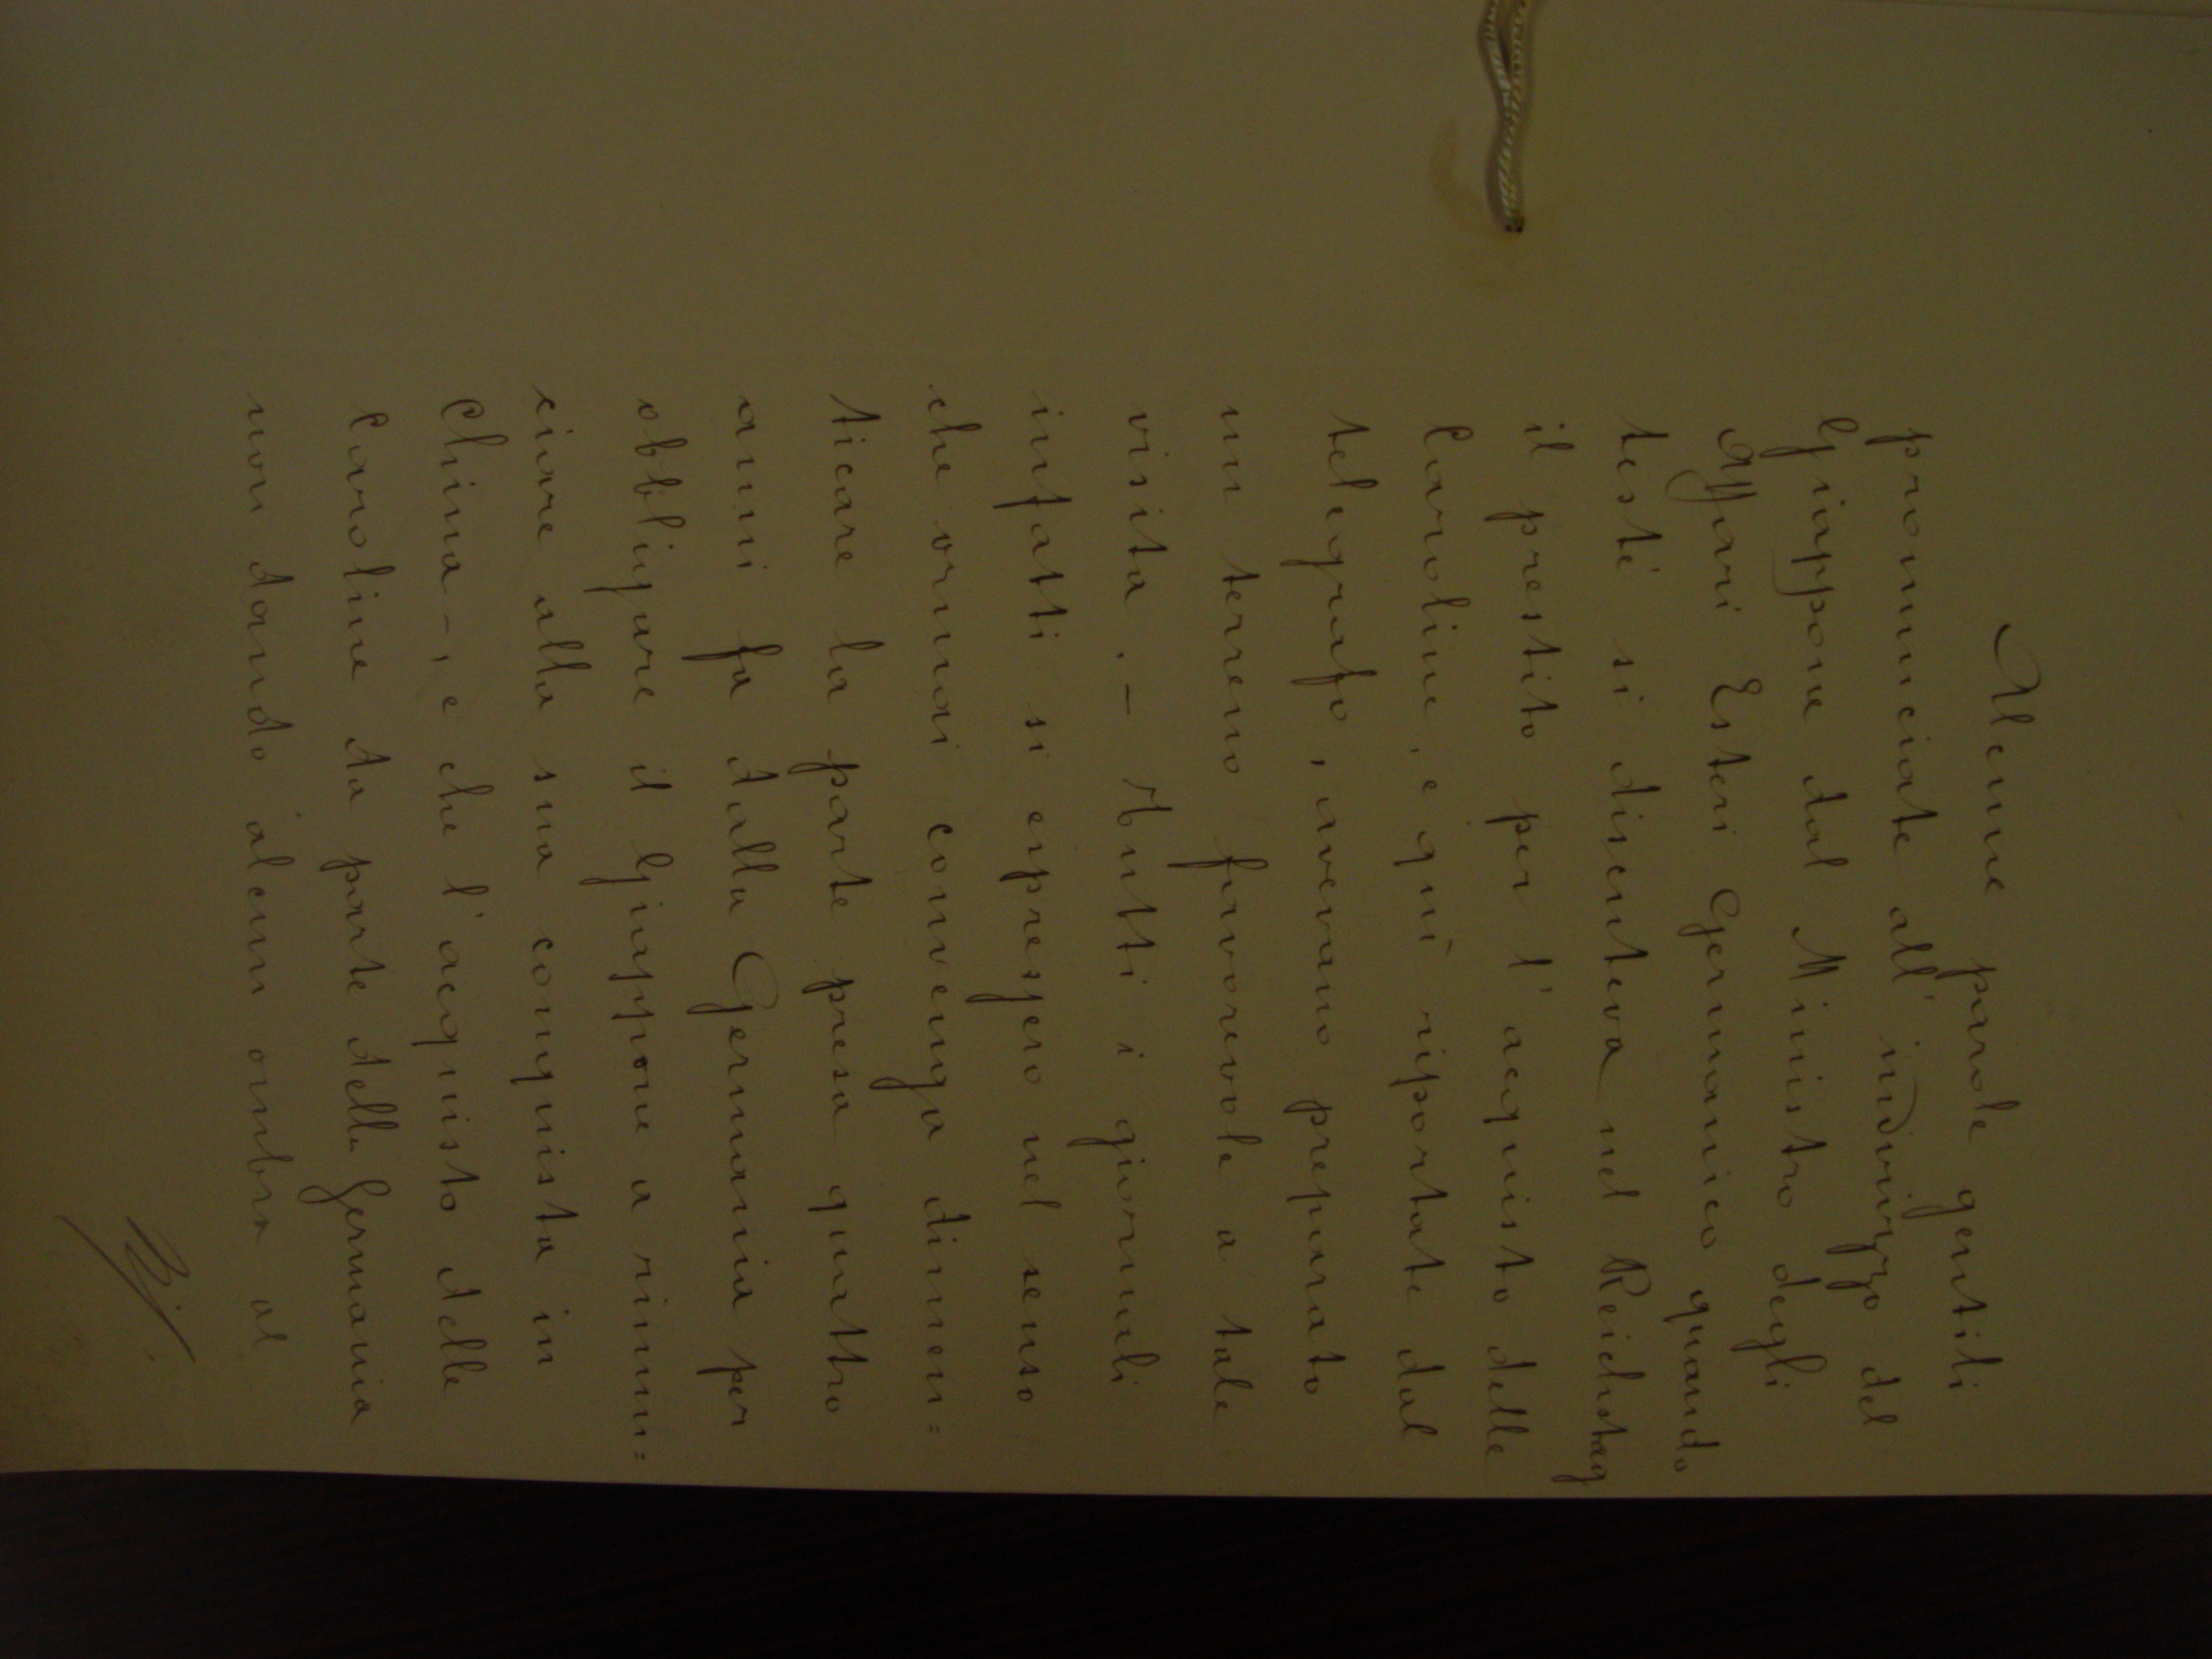 Alcune parole gentili
pronunciate all' indirizzo del
Giappone dal Ministro degli
Affari Esteri Germanico quando
testé si discuteva nel Reichstag
il prestito per l' acquisto delle
Caroline, e quì riportate dal
telegrafo, avevano preparato
un terreno favorevole a tale
visita. – Tutti i giornali
infatti si espressero nel senso
che ormai convenga dimen=
ticare la parte presa quattro
anni fa dalla Germania per
obbligare il Giappone a rinun=
ciare alla sua conquista in
China –, e che l' acquisto delle
Caroline da parte della Germania
non dando alcun ombra al